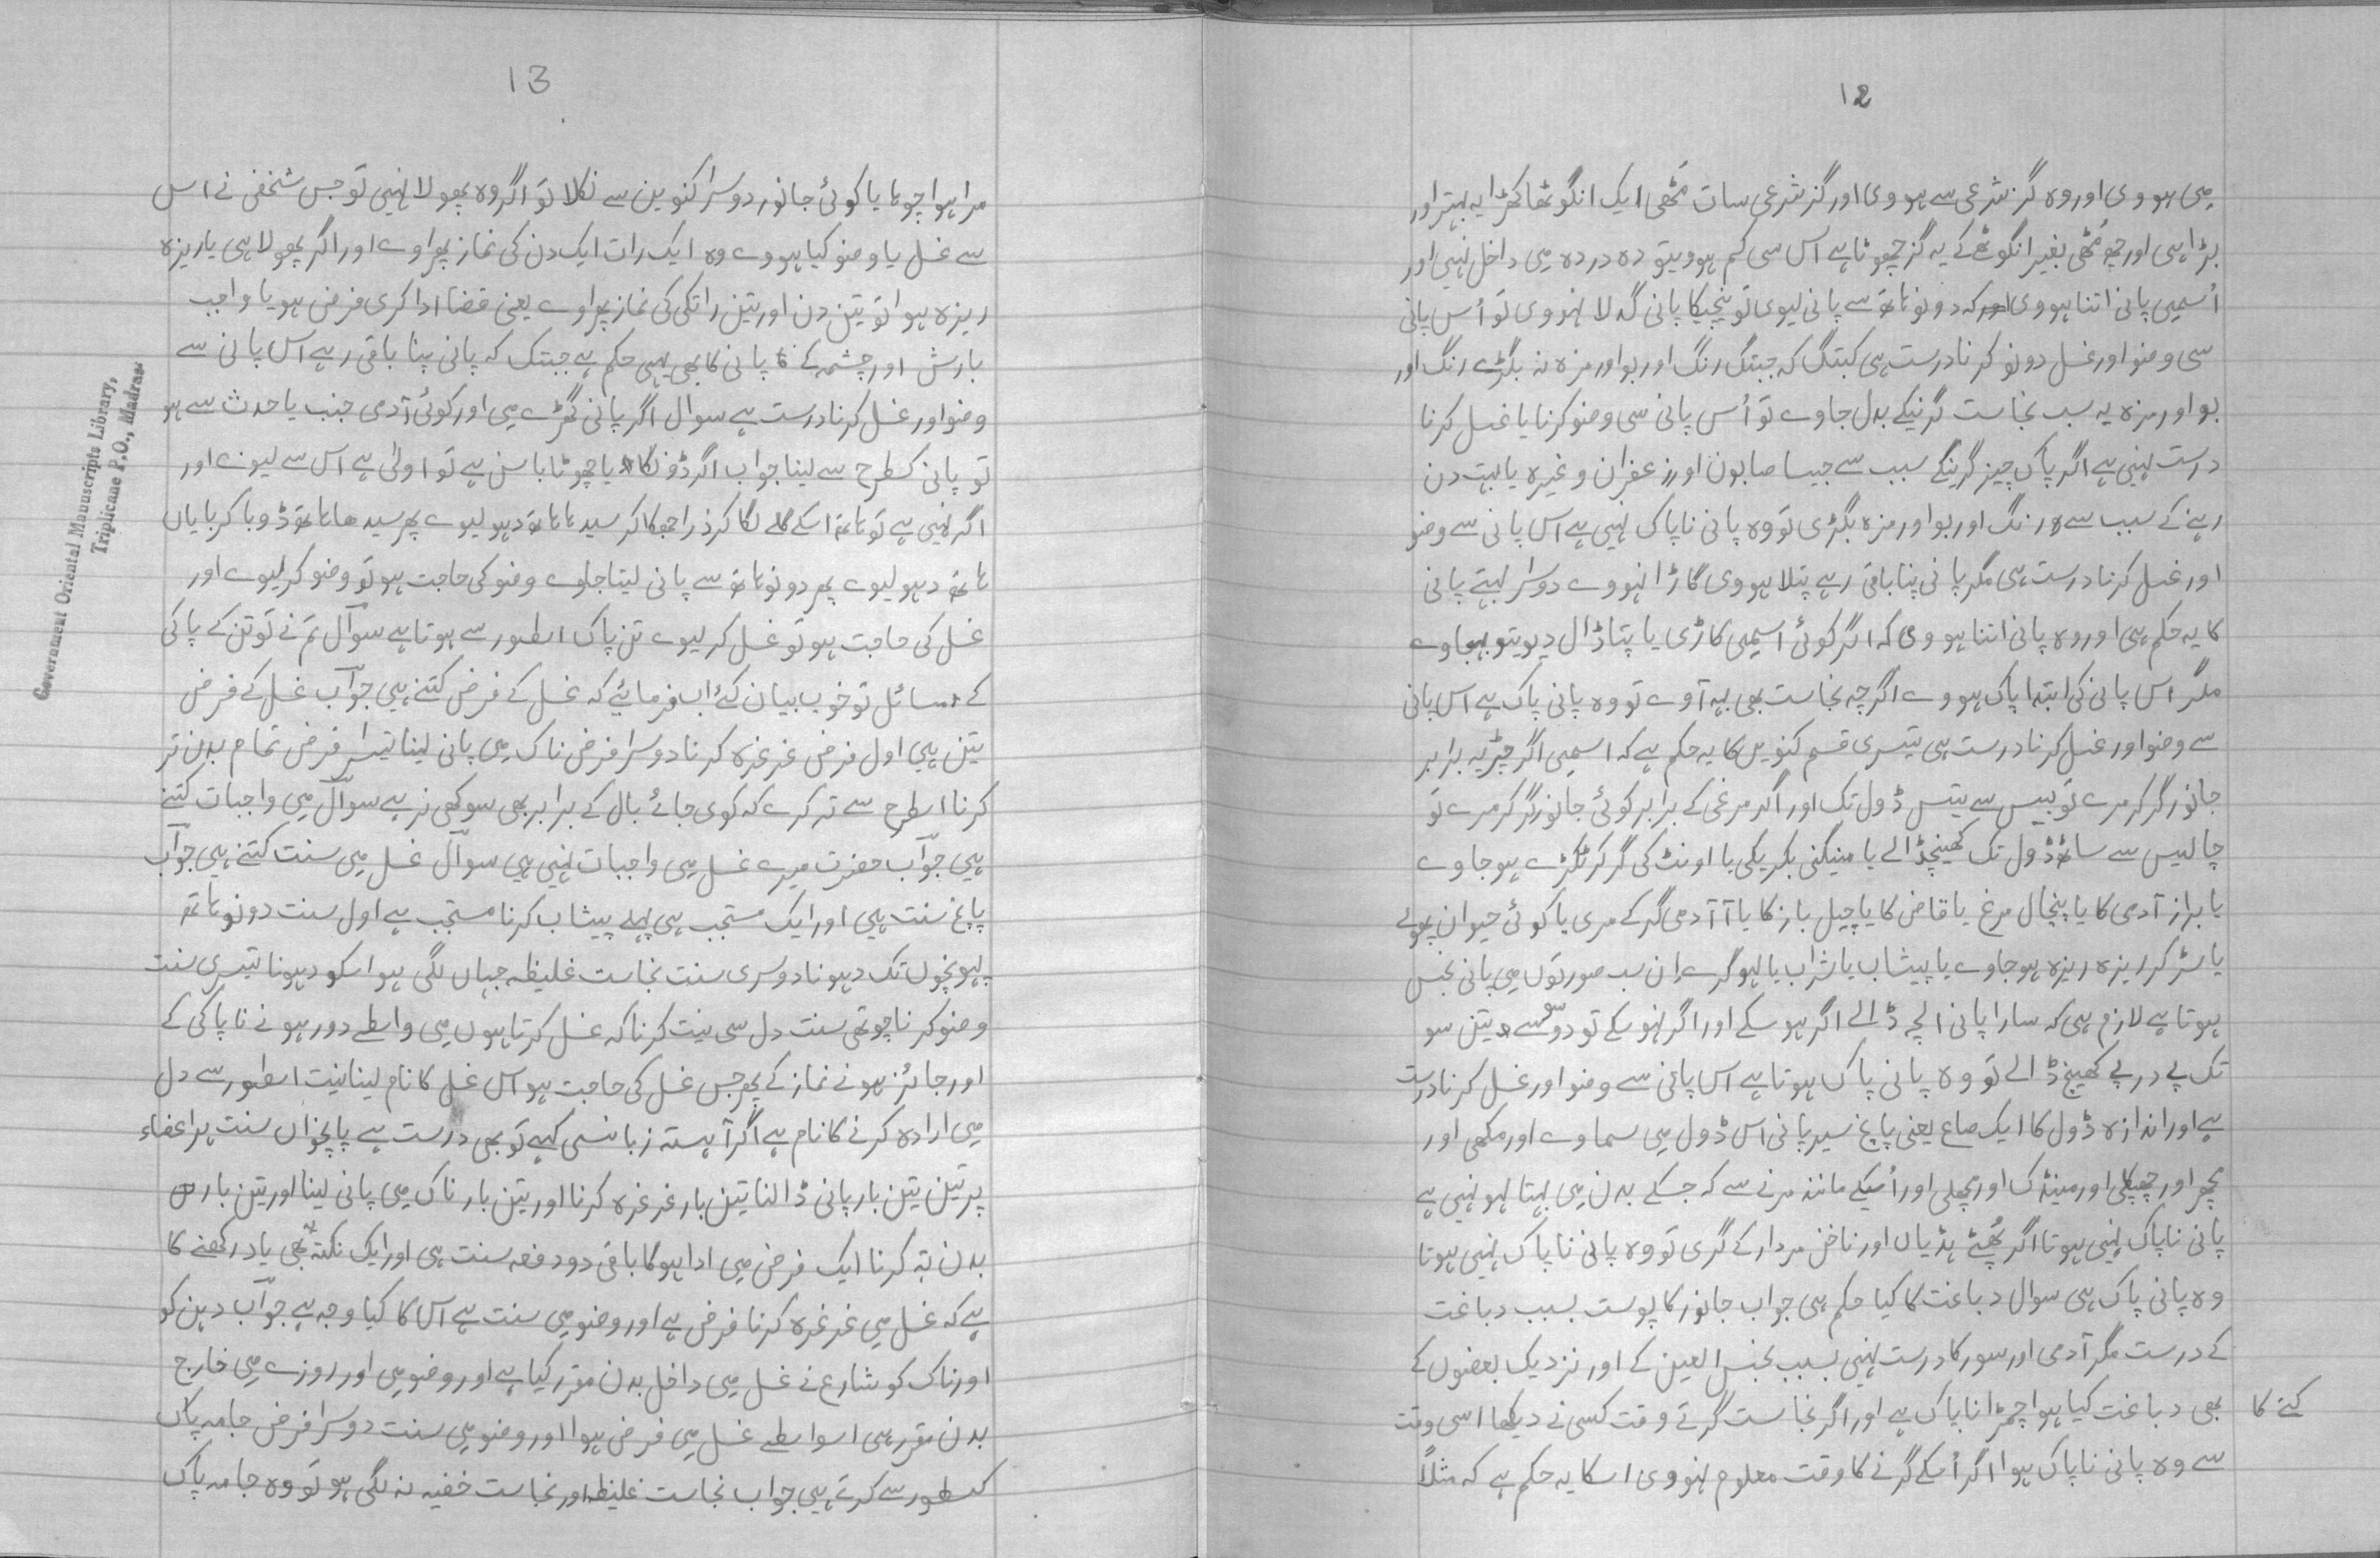 12
می ہووی اور وہ گز شرعی سے ہووی اور گز شرعی سات مُٹھی ایک انگوٹھا کھڑا یہ بہتر اور
بڑا ہی اور چھ مُٹھی بغیر انگوٹھے کے یہ گز چھوٹا ہے اس سی کم ہوویتو دہ در دہ می داخل نہیی اور
اُسمیی پانی اتنا ہووی کہ دونو ہاتھ سے پانی لیوی تو نیچیکا پانی گدلا نہووی تو اُس پانی
سی وضو اور غسل دونو کرنا درست ہی کبتگ کہ جبتگ رنگ اور بو اور مزہ نہ بگڑے رنگ اور
بو اور مزہ بہ سبب نجاست گرنیکے بدل جاوے تو اُس پانی سی وضو کرنا یا غسل کرنا
درست نہیی ہے اگر پاک چیز گرینگے سبب سے جیسا صابون اور زعفران وغیرہ یا بہت دن
رہنے کے سبب سے رنگ اور بو اور مزہ بگڑی تو وہ پانی ناپاک نہیی ہے اس پانی سے وضو
اور غسل کرنا درست ہی مگر پانی پنا باقی رہے پتلا ہووی گاڑا نہووے دوسرا بہتے پانی
کا یہ حکم ہی اور وہ پانی اتنا ہووی کہ اگر کوئی اسمیی کاڑی یا پتا ڈال دیویتو بہجاوے
مگر اس پانی کی ابتدا پاک ہووے اگرچہ نجاست بھی بہہ آوے تو وہ پانی پاک ہے اس پانی
سے وضو اور غسل کرنا درست ہی تیسری قسم کنویں کا یہ حکم ہے کہ اسمیی اگر چڑیہ برابر
جانور گر کر مرے تو بیس سے تیس ڈول تک اور اگر مرغی کے برابر کوئی جانور گر کر مرے تو
چالیس سے ساٹھ ڈول تک کھینچڈالے یا مینگنی بکریکی یا اونٹ کی گر کر ٹکڑے ہوجاوے
یا براز آدمی کا یا پنچال مرغ یا قاض کا یا چیل باز کا یا آدمی گر کے مری یا کوئی حیوان پھولے
یا سڑ کر ریزہ ریزہ ہوجاوے یا پیشاب یا شراب یا لہو گرے ان سب صورتوں می پانی نجس
ہوتا ہے لازم ہی کہ سارا پانی الچہ ڈالے اگر ہو سکے اور اگر نہو سکے تو دو سو سے تین سو
تک پے در پے کھینچ ڈالے تو وہ پانی پاک ہوتا ہے اس پانی سے وضو اور غسل کرنا درست
ہے اور اندازہ ڈول کا ایک صاع یعنی پانچ سیر پانی اس ڈول می سماوے اور مکھی اور
مچھر اور چھپکلی اور مینڈک اور مچھلی اور اُسیکے مانند مرنے سے کہ جسکے بدن می بہتا لہو نہیی ہے
پانی ناپاک نہیی ہوتا اگر پُٹھے ہڈیاں اور ناخن مردار کے گری تو وہ پانی ناپاک نہیی ہوتا
وہ پانی پاک ہی سوال دباغت کا کیا حکم ہی جواب جانور کا پوست بسبب دباغت
کے درست مگر آدمی اور سور کا درست نہیی بسبب نجس العین کے اور نزدیک بعضوں کے
کتے کا بھی دباغت کیا ہوا چمڑا ناپاک ہے اور اگر نجاست گرتے وقت کسی نے دیکھا اسی وقت
سے وہ پانی ناپاک ہوا اگر اُسکے گرنے کا وقت معلوم نہووی اسکا یہ حکم ہے کہ مثلاً
13
مرا ہوا چوہا یا کوئی جانور دوسرا کنویں سے نکلا تو اگر وہ پھولا نہیی تو جس شخص نے اس
سے غسل یا وضو کیا ہووے وہ ایک رات ایک دن کی نماز پھراوے اور اگر پھولا ہی یا ریزہ
ریزہ ہوا تو تین دن اور تین راتکی کی نماز پھراوے یعنی قضا ادا کری فرض ہو یا واجب
بارش اور چشمہ کے پانی کا بھی یہی حکم ہے جبتک کہ پانی پنا باقی رہے اس پانی سے
وضو اور غسل کرنا درست ہے سوال اگر پانی گھڑے می اور کوئی آدمی جنب یا حدث سے ہو
تو پانی کسطرح سے لینا جواب اگر ڈونگا یا چھوٹا باسن ہے تو اولیٰ ہے اس سے لیوے اور
اگر نہیی ہے تو ہاتھ اسکے گلے لگا کر ذرا جھکا کر سیدہا ہاتھ دہو لیوے پھر سیدھا ہاتھ ڈوبا کر بایاں
ہاتھ دہو لیوے پھر دونو ہاتھ سے پانی لیتا جاوے وضو کی حاجت ہو تو وضو کر لیوے اور
غسل کی حاجت ہو تو غسل کر لیوے تن پاک اسطور سے ہوتا ہے سوال تم نے تو تن کے پاکی
کے مسائل تو خوب بیان کئے اب فرمائیے کہ غسل کے فرض کتنے ہیی جواب غسل کے فرض
تین ہیی اول فرض غرغرہ کرنا دوسرا فرض ناک می پانی لینا تیسرا فرض تمام بدن تر
کرنا اسطرح سے تر کرے کہ کوی جائے بال کے برابر بھی سوکھی نرہے سوال می واجبات کتنے
ہیی جواب حضرت میرے غسل می واجبات نہیی ہیی سوال غسل می سنت کتنے ہیی جواب
پانچ سنت ہیی اور ایک مستحب ہی پہلے پیشاب کرنا مستحب ہے اول سنت دونو ہاتھ
پہونچوں تک دہونا دوسری سنت نجاست غلیظہ جہاں لگی ہو اسکو دہونا تیسری سنت
وضو کرنا چوتھی سنت دل سی نیت کرنا کہ غسل کرتا ہوں می واسطے دور ہونے ناپاکی کے
اور جائز ہونے نماز کے پھر جس غسل کی حاجت ہو اس غسل کا نام لینا نیت اسطور سے دل
می ارادہ کرنے کا نام ہے اگر آہستہ زبانسی کہے تو بھی درست ہے پانچواں سنت ہر اعضاء
پر تین تین بار پانی ڈالنا تین بار غرغرہ کرنا اور تین بار ناک می پانی لینا اور تین بار
بدن تر کرنا ایک فرض می ادا ہوگا باقی دو دفعہ سنت ہی اور ایک نکتہ بھی یاد رکھنے کا
ہے کہ غسل می غرغرہ کرنا فرض ہے اور وضو می سنت ہے اس کا کیا وجہ ہے جواب دہن کو
اور ناک کو شارع نے غسل می داخل بدن مقرر کیا ہے اور وضو می اور روزے می خارج
بدن مقرر ہی اسواسطے غسل می فرض ہوا اور وضو می سنت دوسرا فرض جامہ پاک
کسطور سے کرتے ہیی جواب نجاست غلیظہ اور نجاست خفیہ نہ لگی ہو تو وہ جامہ پاک
Government Oriental Manuscripts Library,
Triplicane P.O., Madras.